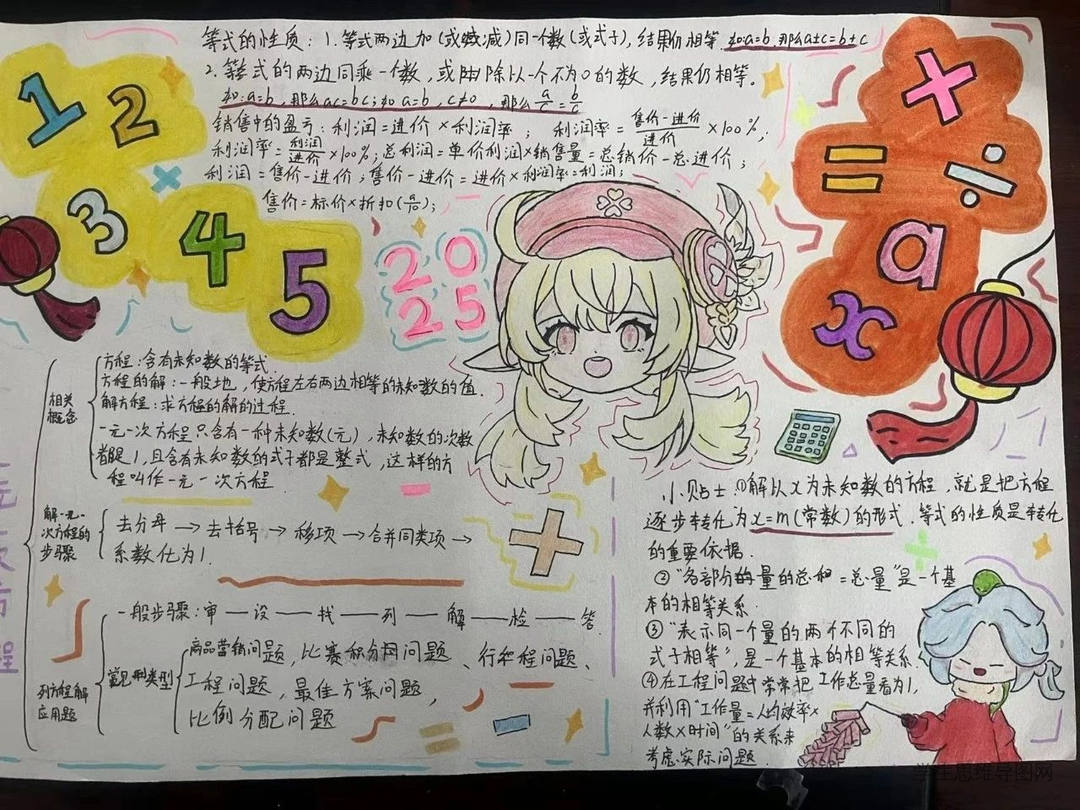 等式的性质：1.等式两边加(或减)同一个数(或式子),结果仍相等 如:a=b,那么a±c=b±c
2.等式的两边同乘一个数,或除以一个不为0的数,结果仍相等。
如:a=b,那么ac=bc;如a=b,c≠0,那么a/c=b/c
销售中的盈亏:利润=进价×利润率; 利润率=售价-进价/进价×100%,
利润率=利润/进价×100%;总利润=单价利润×销售量=总销价-总进价;
利润=售价-进价;售价-进价=进价×利润率=利润;
售价=标价×折扣(a/10);
1 2
3 4 5
20
25
+
= ÷
a
x
相关概念
方程:含有未知数的等式.
方程的解:一般地,使方程左右两边相等的未知数的值.
解方程:求方程的解的过程.
一元一次方程只含有一种未知数(元),未知数的次数
都是1,且含有未知数的式子都是整式,这样的方
程叫作一元一次方程.
解一元一次方程的步骤
去分母→去括号→移项→合并同类项→
系数化为1.
列方程解应用题
一般步骤:审—设—找—列—解—检—答.
常见题型类型
商品营销问题,比赛积分问题、行程问题、
工程问题,最佳方案问题,
比例分配问题
小贴士:①解以x为未知数的方程,就是把方程
逐步转化为x=m(常数)的形式.等式的性质是转化
的重要依据.
②"各部分的量的总和=总量"是一个基
本的相等关系.
③"表示同一个量的两个不同的
式子相等",是一个基本的相等关系
④在工程问题中常常把工作总量看为1,
并利用"工作量=人均效率×
人数×时间"的关系来
考虑实际问题.
学生思维导图网